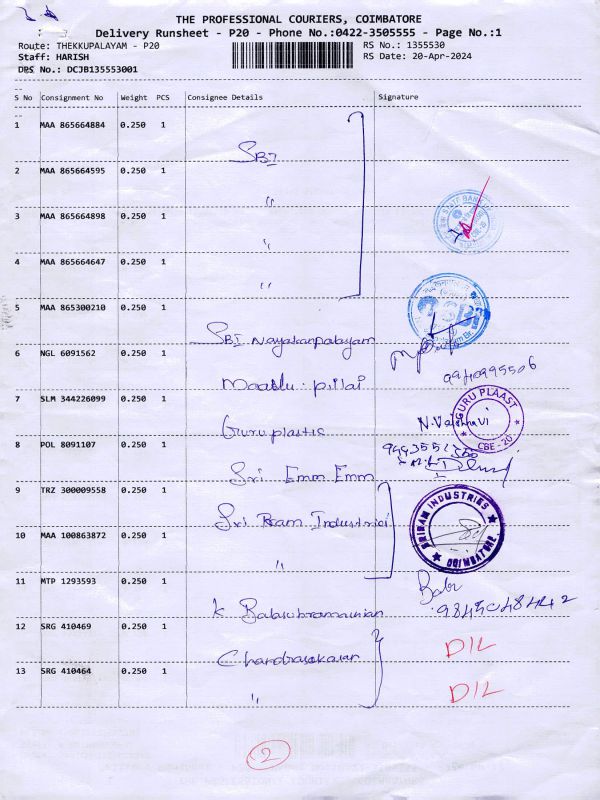 THE PROFESSIONAL COURIERS, COIMBATORE
Delivery Runsheet - P20 - Phone No.:0422-3505555 - Page No.:1
Route: THEKKUPALAYAM - P20
RS No.: 1355530
Staff: HARISH
RS Date: 20-Apr-2024
DRS No.: DCJB135553001
S No Consignment No Weight PCS Consignee Details Signature
1 MAA 865664884 0.250 1 SBI
2 MAA 865664595 0.250 1 "
3 MAA 865664898 0.250 1 "
4 MAA 865664647 0.250 1 "
5 MAA 865300210 0.250 1 SBI Nayakanpalayam
SBI
6 NGL 6091562 0.250 1 pillai
7 SLM 344226099 0.250 1 Guru plastic N. Vaishnavi
GURU PLAAST
CBE - 20
8 POL 8091107 0.250 1 Sri Emm Emm
9 TRZ 300009558 0.250 1 Sri Ram Industrial
SRIRAM INDUSTRIES
COIMBATORE
10 MAA 100863872 0.250 1 "
11 MTP 1293593 0.250 1 K Balasubramanian Babu
12 SRG 410469 0.250 1 Chandrasekaran DIL
13 SRG 410464 0.250 1 " DIL
2